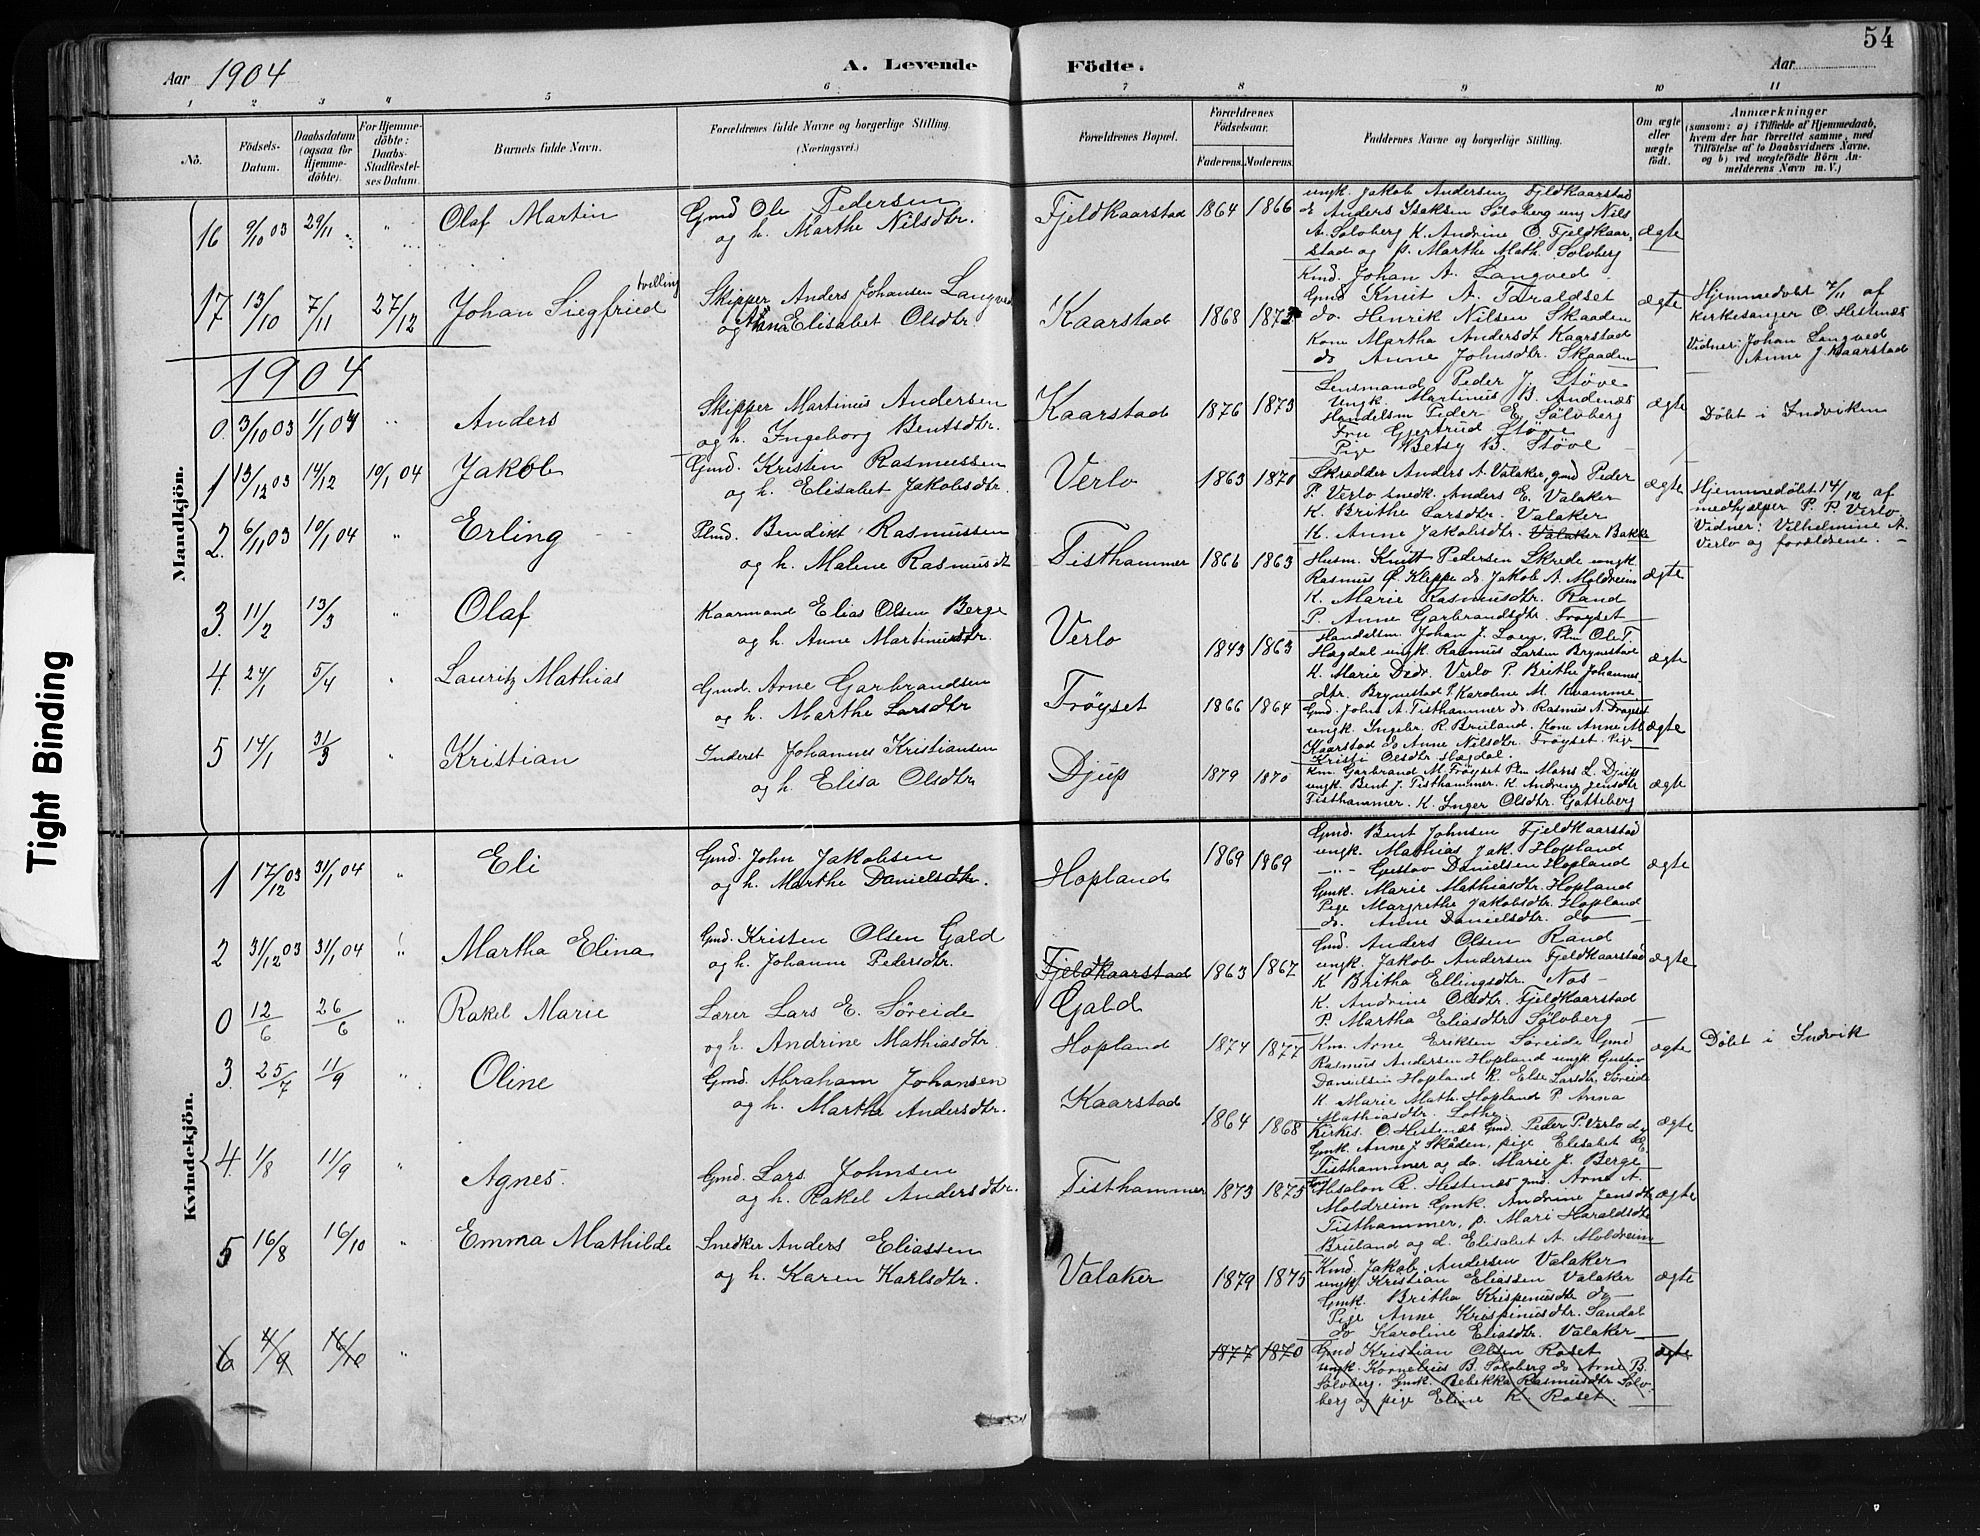 54
Aar 1904
A. Levende Födte.
Aar
1 2 3 4 5 6 7 8 9 10 11
No.
Födsels-Datum.
Daabsdatum (ogsaa för Hjemme-döbte).
For Hjemme-döbte: Daabs-Stadfæstel-ses Datum.
Barnets fulde Navn.
Forældrenes fulde Navne og borgerlige Stilling. (Næringsvei.)
Forældrenes Bopæl.
Forældrenes Födselsaar.
Faderens. Moderens.
Faddernes Navne og borgerlige Stilling.
Om ægte eller uægte födt.
Anmærkninger
(saasom: a) i Tilfælde af Hjemmedaab, hvem der har forrettet samme, med Tilföielse af to Daabsvidners Navne. og b) ved uægtefödte Börn An-melderens Navn m. V.)
Mandkjön.
16 9/10 03 29/11 " Olaf Martin
Gmd Ole Pedersen
og h. Marthe Nilsdtr.
Fjeldkaarstad 1864 1866
ungk. Jakob Andersen Fjeldkaarstad
do Anders Iseksen Sölvberg ung Nils
A. Solvberg K. Andrine O. Fjeldkaar-
stad og p. Marthe Math. Solvberg
ægte
17 13/10 7/11 27/12 Johan Siegfried tvelling
Skipper Anders Johansen Langved
og Anna Elisabet Olsdtr.
Kaarstad 1868 1873
Kmd. Johan A. Langved
Gmd Knut A. Taraldset
do. Henrik Nilsen Skaaden
Kone Martha Andersdt Kaarstad
do Anne Johnsdtr. Skaaden
ægte
Hjemmedobt 7/11 af
Kirkesanger O. Hestenæs
Vidner: Johan Langved
Anne J Kaarstad
1904
0. 3/10 03 1/1 04 " Anders
Skipper Martinus Andersen
og h. Ingeborg Bentsdtr.
Kaarstad 1876 1873
Lensmand Peder Jb. Stöve
Ungk. Martinus B. Andenæs
Handelsm Peder E. Sölvberg
Fru Gjertrud Stöve
Pige Betsy B. Stöve
ægte
Döbt i Indviken
1 13/12 03 14/12 10/1 04 Jakob
Gmd. Kristen Rasmussen
og h. Elisabet Jakobsdtr.
Verlo 1863 1870
Skrædder Anders A. Valaker, gmd Peder
P. Verlo snedk. Anders E. Valaker
K. Brithe Larsdtr. Valaker
K. Anne Jakobsdtr. Valaker Bakke
ægte
Hjemmedöbt 14/12 af
medhjælper P. P. Verlo.
Vidner: Vilhelmine A.
Verlo og forældrene.
2. 6/11 03 10/1 04 " Erling
Plmd. Bendikt Rasmussen
og h. Malene Rasmusdt
Tisthammer 1866 1863
Husm. Knut Pedersen Skrede ungk.
Rasmus O. Kleppe do. Jakob A. Moldreim
K. Marie Rasmusdtr. Rand
P. Anne Garbrandsdtr. Froyset
ægte
3. 11/2 13/3 " Olaf
Kaarmand Elias Olsen Berge
og h. Anne Martinusdtr.
Verlo 1843 1863
Handelsm. Johan J. Loen, Plm Ole T.
Hagdal ungk Rasmus Larsen Brynestad
K. Marie Didr. Verlo P. Brithe Johannes
dtr. Brynestad P. Karoline M. Kvamme
ægte
4. 24/1 5/4 " Lauritz Mathias
Gmd. Arne Garbrandsen
og h. Marthe Larsdtr
Fröyset 1866 1864
Gmd. John A. Tisthammer do Rasmus A. Froyset
ungk. Ingebr. R. Bruland. Kone Anne M
Kaarstad do Anne Nilsdtr. Froyset. Pige
Kristi Olsdtr Hagdal.
ægte
5 14/1 31/3 " Kristian
Inderst Johannes Kristiansen
og h. Elisa Olsdtr
Djup 1879 1870
Km. Garbrand M. Froyset Plm Mons L. Djup
ungk. Bent J. Tisthammer. K. Andrine Jensdtr
Tisthammer. K. Inger Olsdtr. Gotteberg
ægte
Kvindekjön.
1 17/12 03 31/1 04 " Eli
Gmd. John Jakobsen
og h. Marthe Danielsdtr.
Hopland 1869 1869
Gmd. Bent Johnsen Fjeldkaarstad
ungk. Mathias Jak. Hopland
–"– Gustav Danielsen Hopland
Gmk. Marie Mathiasdtr. Hopland
Pige Margrethe Jakobsdtr. Hopland
do. Anne Danielsdtr. do
ægte
2 31/12 03 31/1 04 " Martha Elina
Gmd. Kristen Olsen Gald
og h. Johanne Pedersdtr.
Fjeldkaarstad Gald 1863 1867
Gmd. Anders Olsen Rand
ungk. Jakob Andersen Fjeldkaarstad
K Britha Ellingsdtr. Nos
K. Andrine Olsdtr. Fjeldkaarstad
P. Martha Eliasdtr Sölvberg
ægte
0 12/6 26/6 " Rakel Marie
Lærer Lars E. Söreide
og h. Andrine Mathiasdtr.
Hopland 1874 1877
Km. Arne Eriksen Söreide Gmd
Rasmus Andersen Hopland ungk. Gustav
Danielsen Hopland K. Else Larsdtr. Söreide
K. Marie Math. Hopland P Anna
Mathiasdtr. Lothe
ægte
Döbt i Indvik
3. 25/7 11/9 " Oline
Gmd. Abraham Johansen
og h. Martha Andersdtr.
Kaarstad 1864 1868
Kirkes. O. Hestenæs Gmd. Peder P. Verlo
Gmk. Anne J Skåden, pige Elisabet
Tisthammer og do. Marie J. Berge
ægte
4. 1/8 11/9 " Agnes.
Gmd. Lars Johnsen
og h. Rakel Andersdtr.
Tisthammer 1873 1875
Absalon R. Hestenæs gmd. Arne A.
Moldreim Gmk. Andrine Jensdtr
Tisthammer, p. Mari Haraldsdtr
Bruland og d. Elisabet A. Moldreim
ægte
5 16/8 16/10 " Emma Mathilde
Snedker Anders Eliassen
og h. Karen Karlsdtr.
Valaker 1879 1875
Kmd. Jakob Andersen Valaker
ungk. Kristian Eliassen Valaker
Gmk. Britha Krispinusdtr do
Pige Anne Krispinusdtr. Sandal
do Karoline Eliasdtr. Valaker
ægte
6 4/9 16/10 "
1877 1870
Gmd Kristian Olsen Roset
ungk. Kornelius B. Sölvberg do Arne B.
Sölvberg. Gmk. Rebekka Rasmusdtr Sölv-
berg og pige Eline K. Roset.
ægte
Tight Binding